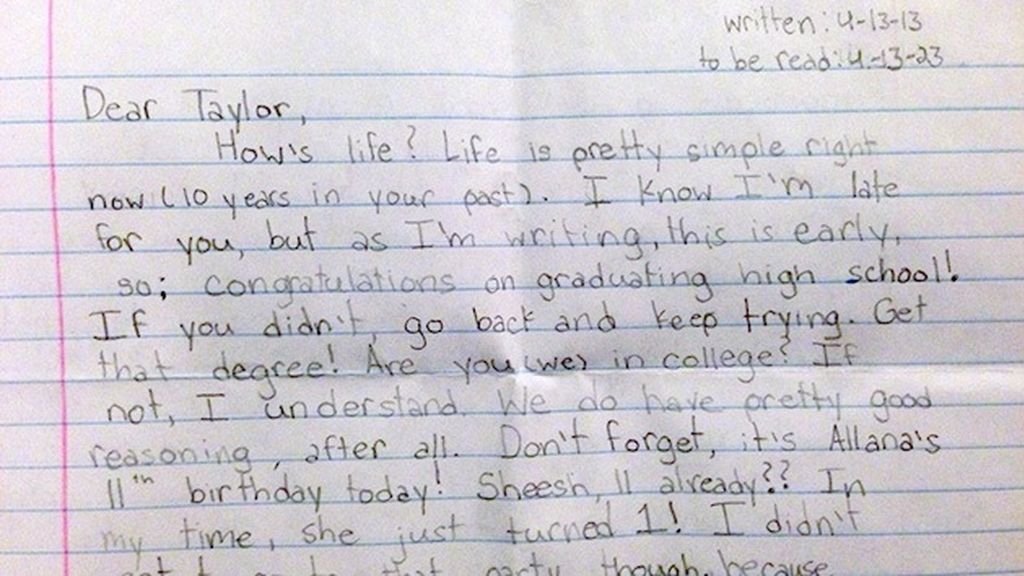 written: 4-13-13
to be read: 4-13-23
Dear Taylor,
How's life? Life is pretty simple right
now (10 years in your past). I know I'm late
for you, but as I'm writing, this is early,
so; congratulations on graduating high school!
If you didn't, go back and keep trying. Get
that degree! Are you (we) in college? If
not, I understand. We do have pretty good
reasoning, after all. Don't forget, it's Allana's
11th birthday today! Sheesh, 11 already?? In
my time, she just turned 1! I didn't
to that party though, because